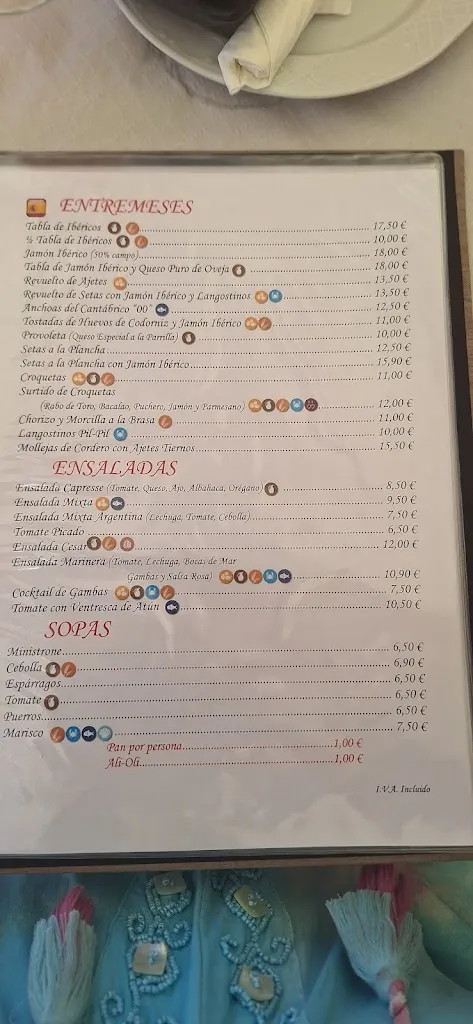 ENTREMESES
Tabla de Ibéricos 17,50 €
½ Tabla de Ibéricos 10,00 €
Jamón Ibérico (50% campo) 18,00 €
Tabla de Jamón Ibérico y Queso Puro de Oveja 18,00 €
Revuelto de Ajetes 13,50 €
Revuelto de Setas con Jamón Ibérico y Langostinos 13,50 €
Anchoas del Cantábrico "00" 12,50 €
Tostadas de Huevos de Codorniz y Jamón Ibérico 11,00 €
Provoleta (Queso Especial a la Parrilla) 10,00 €
Setas a la Plancha 12,50 €
Setas a la Plancha con Jamón Ibérico 15,90 €
Croquetas 11,00 €
Surtido de Croquetas
(Rabo de Toro, Bacalao, Puchero, Jamón y Parmesano) 12,00 €
Chorizo y Morcilla a la Brasa 11,00 €
Langostinos Pil-Pil 10,00 €
Mollejas de Cordero con Ajetes Tiernos 15,50 €
ENSALADAS
Ensalada Capresse (Tomate, Queso, Ajo, Albahaca, Orégano) 8,50 €
Ensalada Mixta 9,50 €
Ensalada Mixta Argentina (Lechuga, Tomate, Cebolla) 7,50 €
Tomate Picado 6,50 €
Ensalada Cesar 12,00 €
Ensalada Marinera (Tomate, Lechuga, Bocas de Mar
Gambas y Salsa Rosa) 10,90 €
Cocktail de Gambas 7,50 €
Tomate con Ventresca de Atún 10,50 €
SOPAS
Ministrone 6,50 €
Cebolla 6,90 €
Espárragos 6,50 €
Tomate 6,50 €
Puerros 6,50 €
Marisco 7,50 €
Pan por persona 1,00 €
Ali-Oli 1,00 €
I.V.A. Incluido